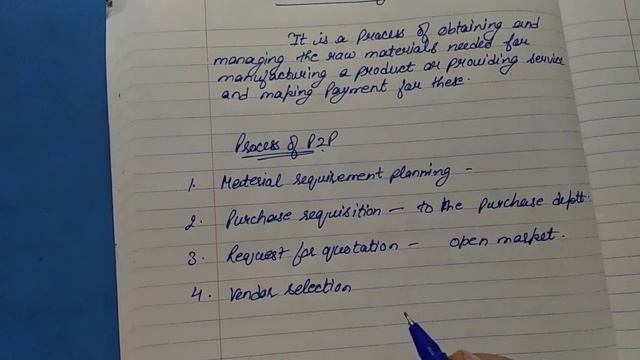 It is a process of obtaining and
managing the raw materials needed for
manufacturing a product or providing service
and making Payment for these.
Process of P2P
1. Material requirement planning -
2. Purchase requisition - to the purchase deptt.
3. Request for quotation - open market.
4. Vendor selection